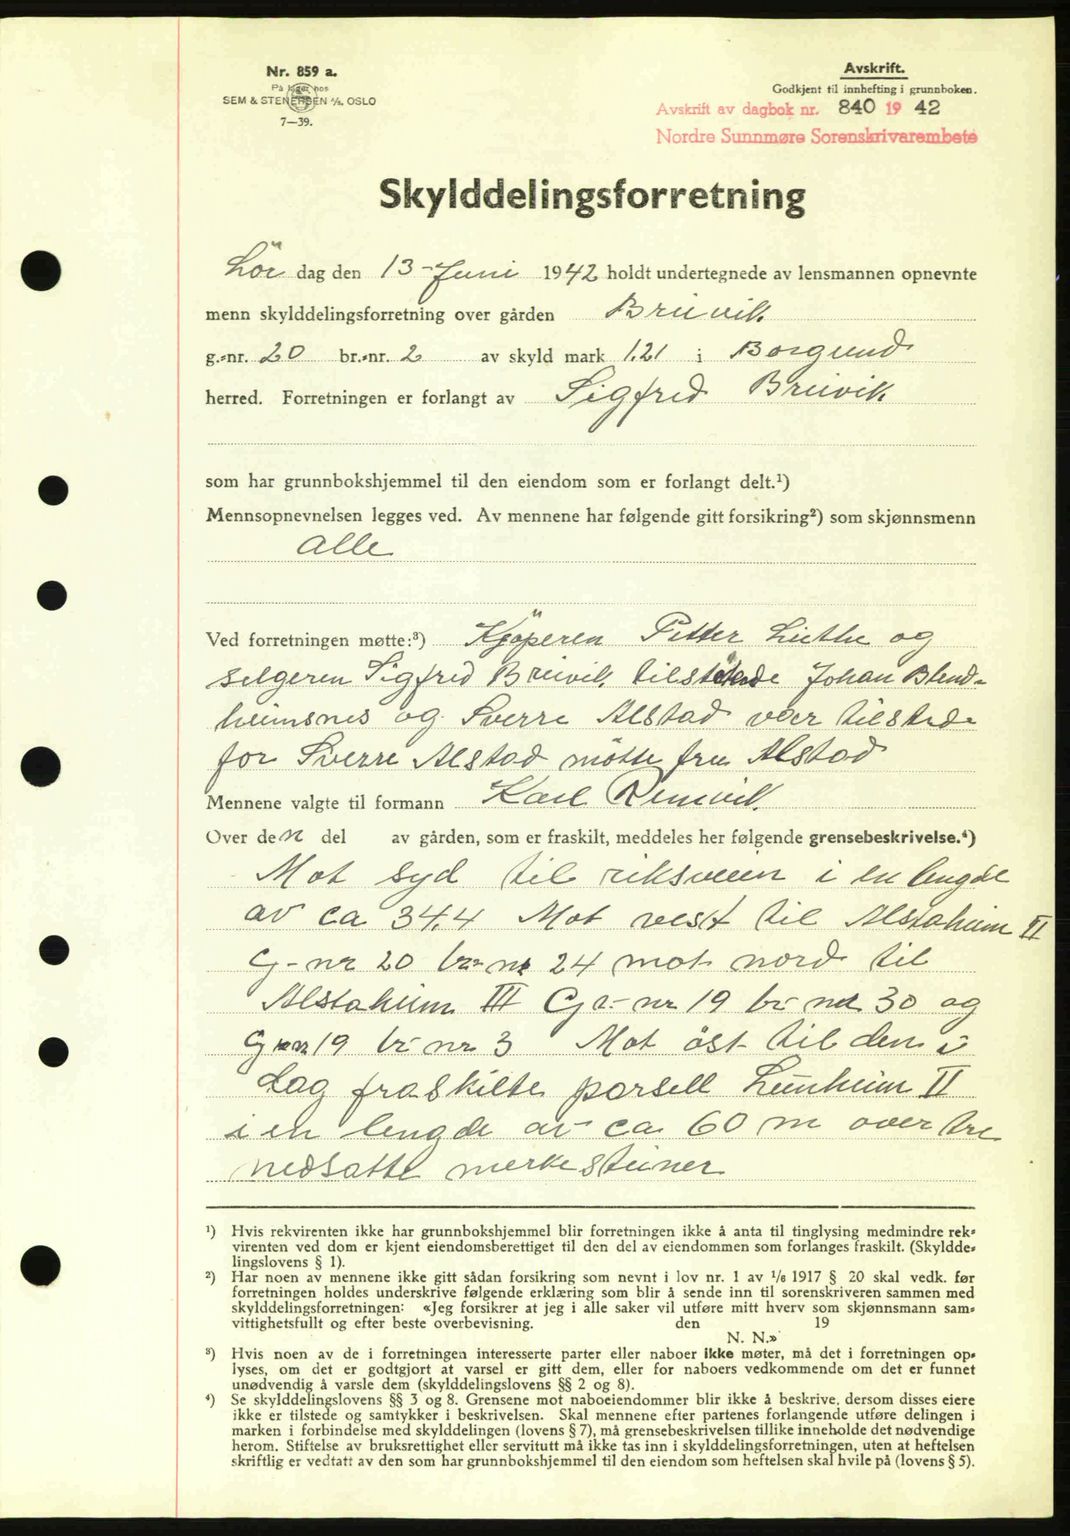 Nr. 859 a.
På lager hos
SEM & STENERSEN A/S. OSLO
7—39.
Avskrift.
Godkjent til innhefting i grunnboken.
Avskrift av dagbok nr. 840 1942
Nordre Sunnmøre Sorenskrivarembete
Skylddelingsforretning
Lör dag den 13-Juni 1942 holdt undertegnede av lensmannen opnevnte
menn skylddelingsforretning over gården Breivik
g.-nr. 20 br.-nr. 2 av skyld mark 1.21 i Borgund
herred. Forretningen er forlangt av Sigfred Breivik
som har grunnbokshjemmel til den eiendom som er forlangt delt.¹)
Mennsopnevnelsen legges ved. Av mennene har følgende gitt forsikring²) som skjønnsmenn
alle
Ved forretningen møtte:³) Kjöperen Petter og
selgeren Sigfred Breivik, tilstede Johan Blind-
heimsnes og Sverre Alstad var tilstede
for Sverre Alstad mötte fru Alstad
Mennene valgte til formann Karl
Over den del av gården, som er fraskilt, meddeles her følgende grensebeskrivelse.⁴)
Mot syd til riksveien i en lengde
av ca 34.4 Mot vest til Alstaheim II
G-nr 20 br-nr 24 mot nord til
Alstaheim III Gr-nr 19 br nr 30 og
G nr 19 br nr 3 Mot öst til den i
dag fraskilte parsell II
i en lengde av ca 60 m over tre
nedsatte merkesteiner
¹) Hvis rekvirenten ikke har grunnbokshjemmel blir forretningen ikke å anta til tinglysing medmindre rek-
virenten ved dom er kjent eiendomsberettiget til den del av eiendommen som forlanges fraskilt. (Skyldde-
lingslovens § 1).
²) Har noen av mennene ikke gitt sådan forsikring som nevnt i lov nr. 1 av ¹/₆ 1917 § 20 skal vedk. før
forretningen holdes underskrive følgende erklæring som blir å sende inn til sorenskriveren sammen med
skylddelingsforretningen: «Jeg forsikrer at jeg i alle saker vil utføre mitt hverv som skjønnsmann sam-
vittighetsfullt og efter beste overbevisning. den 19
N. N.»
³) Hvis noen av de i forretningen interesserte parter eller naboer ikke møter, må det i forretningen op-
lyses, om det er godtgjort at varsel er gitt dem, eller for naboers vedkommende om det er funnet
unødvendig å varsle dem (skylddelingslovens §§ 2 og 8).
⁴) Se skylddelingslovens §§ 3 og 8. Grensene mot naboeiendommer blir ikke å beskrive, dersom disses eiere
ikke er tilstede og samtykker i beskrivelsen. Skal mennene efter partenes forlangende utføre delingen i
marken i forbindelse med skylddelingen (lovens § 7), må grensebeskrivelsen tillike inneholde det nødvendige
herom. Stiftelse av bruksrettighet eller servitutt må ikke tas inn i skylddelingsforretningen, uten at heftelsen
skriftlig er vedtatt av den som har grunnbokshjemmel til den eiendom som heftelsen skal hvile på (lovens § 5).